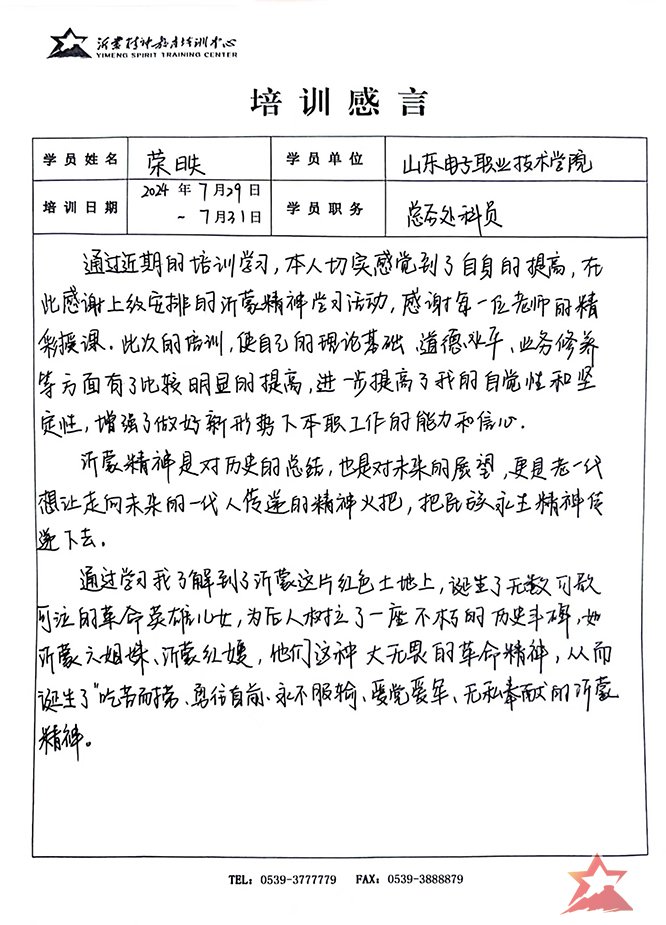 沂蒙精神教育培训中心
YIMENG SPIRIT TRAINING CENTER
培训感言
学员姓名 荣昳 学员单位 山东电子职业技术学院
培训日期 2024年7月29日 ~7月31日 学员职务 总务处科员
通过近期的培训学习，本人切实感觉到了自身的提高，在
此感谢上级安排的沂蒙精神学习活动，感谢每一位老师的精
彩授课．此次的培训，使自己的理论基础 道德水平、业务修养
等方面有了比较明显的提高，进一步提高了我的自觉性和坚
定性，增强了做好新形势下本职工作的能力和信心．
沂蒙精神是对历史的总结，也是对未来的展望，更是老一代
想让走向未来的一代人传递的精神火把，把民族永生精神传
递下去．
通过学习我了解到了沂蒙这片红色土地上，诞生了无数可歌
可泣的革命英雄儿女，为后人树立了一座不朽的历史丰碑，如
沂蒙六姐妹、沂蒙红嫂，他们这种大无畏的革命精神，从而
诞生了“吃苦而捞、勇往自前、永不服输、爱党爱军、无私奉献的沂蒙
精神。
TEL：0539-3777779 FAX：0539-3888879